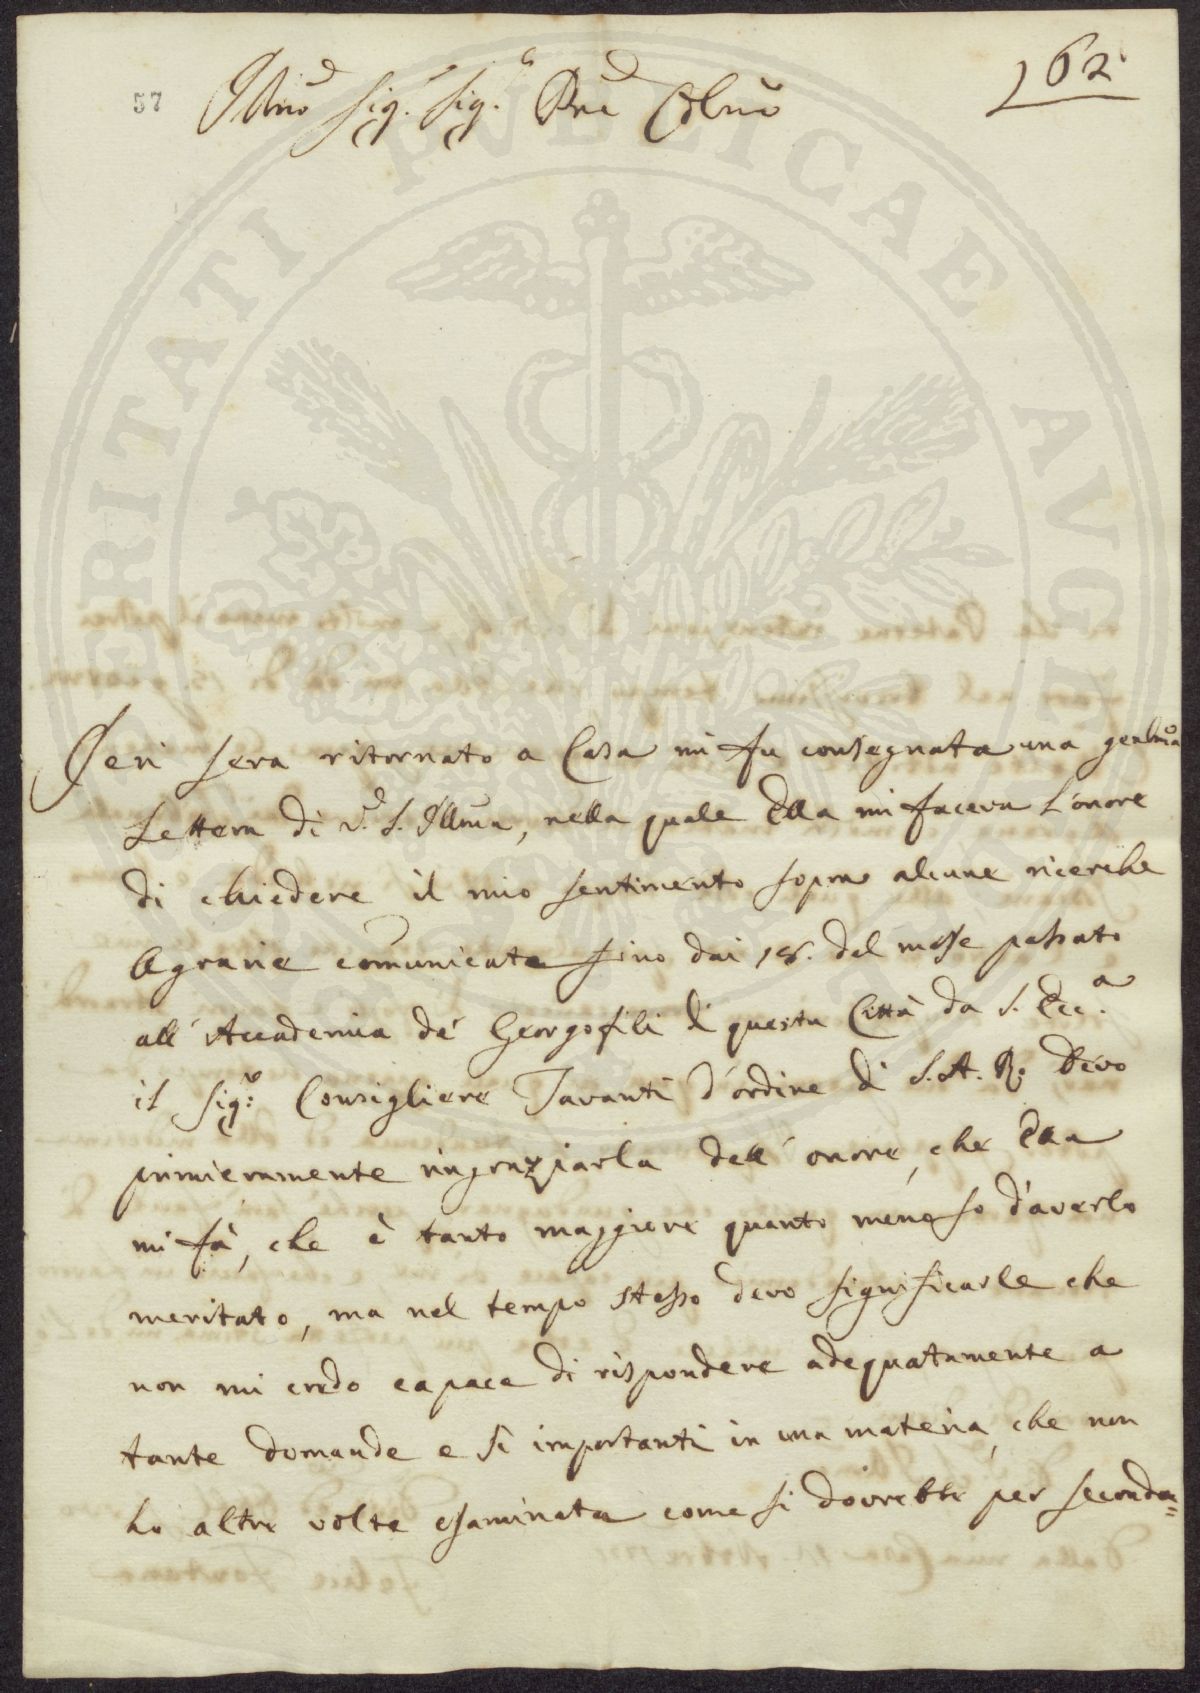 57
62
Illmo Sig.r Sig.r Pne Colmo
Jeri sera ritornato a Casa mi fu consegnata una gentilma
Lettera di V. S. Illma, nella quale Ella mi faceva l'onore
di chiedere il mio sentimento sopra alcune ricerche
Agrarie comunicate fino dai 18. del mese passato
all' Accademia de' Georgofili di questa Città da S. Ecc.a
il Sig.r Consigliere Tavanti d'ordine di S. A. R. Devo
primieramente ringraziarla dell' onore, che Ella
mi fà, che è tanto maggiore quanto meno so d'averlo
meritato, ma nel tempo stesso devo significarle che
non mi credo capace di rispondere adequatamente a
tante domande e sì importanti in una materia, che non
ho altre volte esaminata come si dovrebbe per seconda=
VERITATI PVBLICAE AVGE